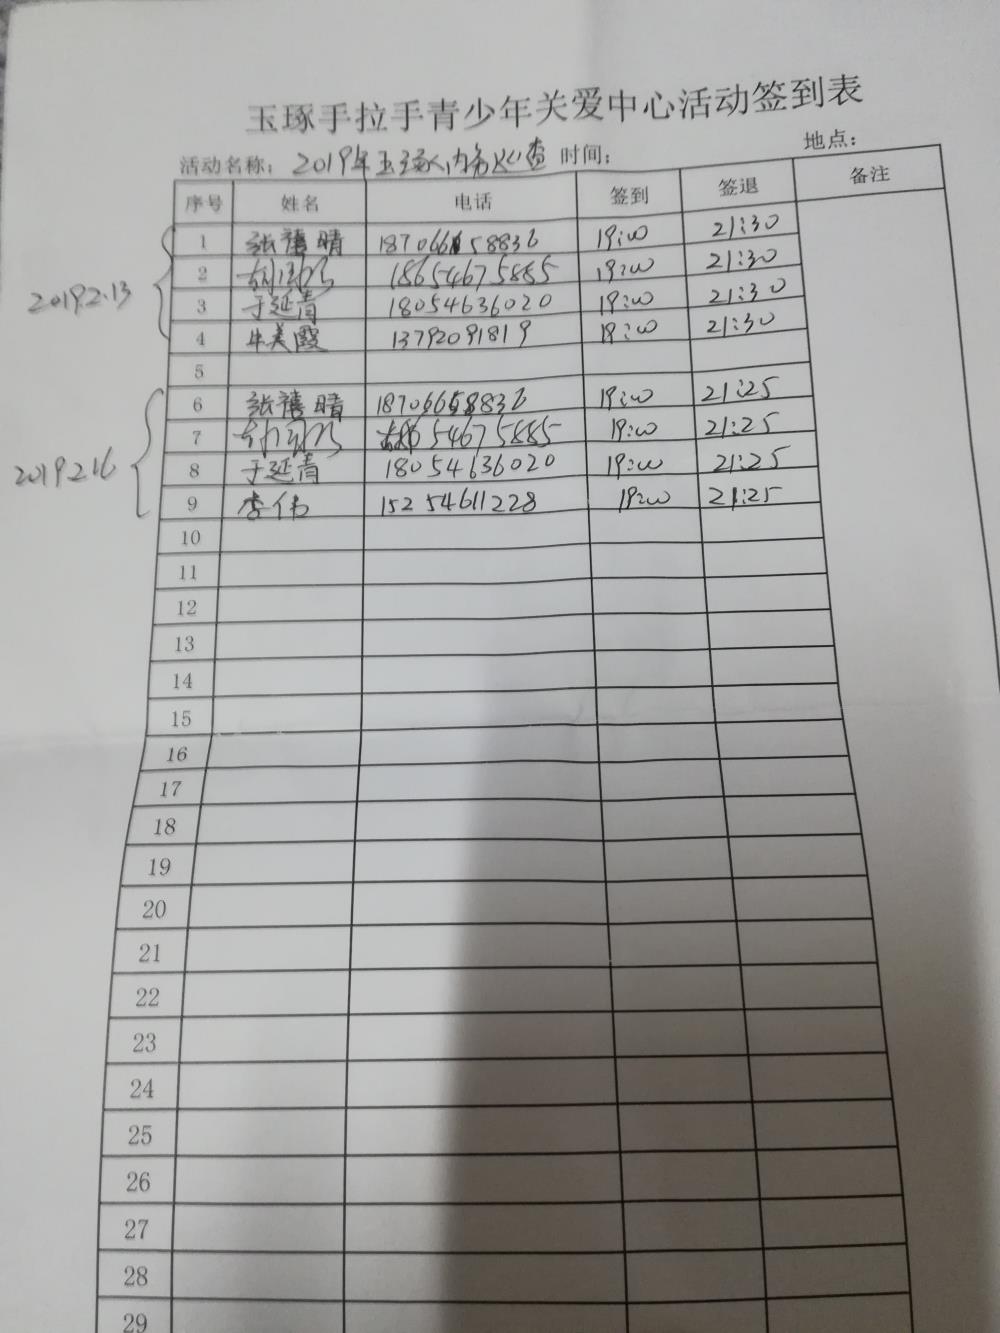 玉琢手拉手青少年关爱中心活动签到表
活动名称: 2019年玉琢人内务 时间: 地点:
序号 姓名 电话 签到 签退 备注
2019.2.13
1 张禧晴 18706658836 19:00 21:30
2 18654675885 19:00 21:30
3 于延青 18054636020 19:00 21:30
4 牛美霞 13792091819 19:00 21:30
5
2019.2.16
6 张禧晴 18706658836 19:00 21:25
7 54675885 19:00 21:25
8 于延青 18054636020 19:00 21:25
9 李伟 15254611228 19:00 21:25
10
11
12
13
14
15
16
17
18
19
20
21
22
23
24
25
26
27
28
29